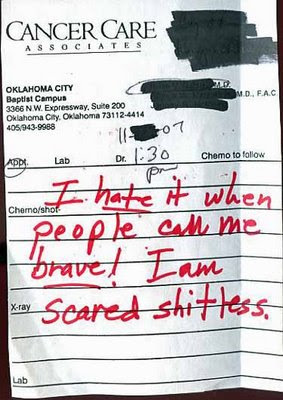 CANCER CARE
ASSOCIATES
OKLAHOMA CITY
Baptist Campus
3366 N.W. Expressway, Suite 200
Oklahoma City, Oklahoma 73112-4414
405/943-9988
M.D.
M.D., F.A.C
11- -07
Appt. Lab Dr. 1:30 Chemo to follow
pm
I hate it when
Chemo/shot
people call me
brave! I am
X-ray
scared shitless.
Lab